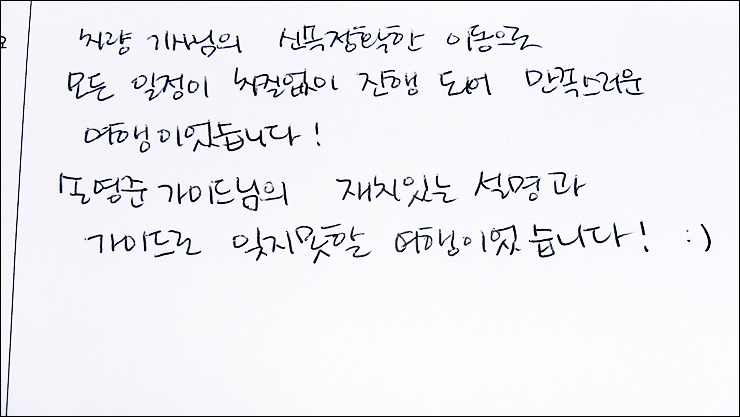 차량 기사님의 신속정확한 이동으로
모든 일정이 차질없이 진행 되어 만족스러운
여행이었습니다!
가이드님의 재치있는 설명과
가이드로 잊지못할 여행이었습니다! :)